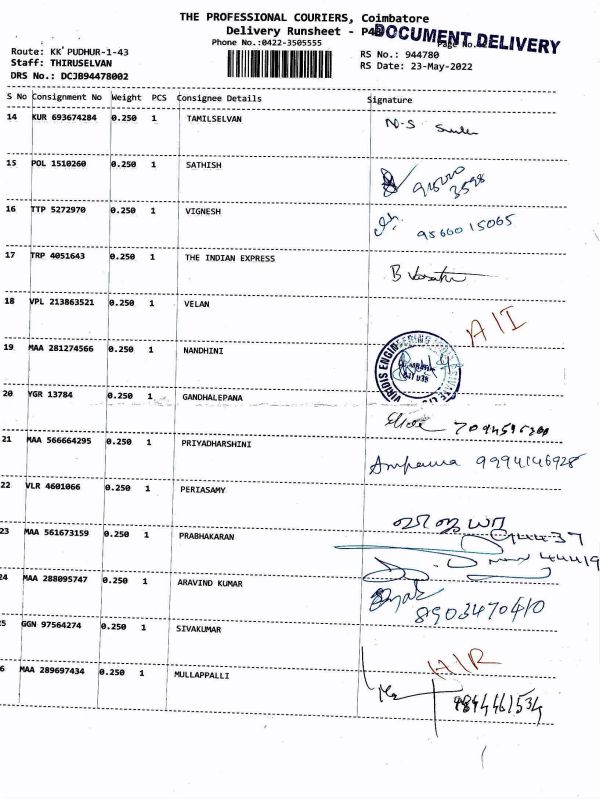 THE PROFESSIONAL COURIERS, Coimbatore
Delivery Runsheet - P4
DOCUMENT DELIVERY
Phone No.:0422-3505555
Page No.
Route: KK PUDHUR-1-43
RS No.: 944780
Staff: THIRUSELVAN
RS Date: 23-May-2022
DRS No.: DCJB94478002
S No Consignment No Weight PCS Consignee Details Signature
14 KUR 693674284 0.250 1 TAMILSELVAN N-S
15 POL 1510260 0.250 1 SATHISH
3598
16 TTP 5272970 0.250 1 VIGNESH 9566015065
17 TRP 4051643 0.250 1 THE INDIAN EXPRESS B
18 VPL 213863521 0.250 1 VELAN A/I
19 MAA 281274566 0.250 1 NANDHINI VIRDIS ENGINEERING
20 YGR 13784 0.250 1 GANDHALEPANA
21 MAA 566664295 0.250 1 PRIYADHARSHINI 9994146928
22 VLR 4601066 0.250 1 PERIASAMY
23 MAA 561673159 0.250 1 PRABHAKARAN 44419
24 MAA 288095747 0.250 1 ARAVIND KUMAR
8903470410
5 GGN 97564274 0.250 1 SIVAKUMAR H/R
6 MAA 289697434 0.250 1 MULLAPPALLI 9894461534